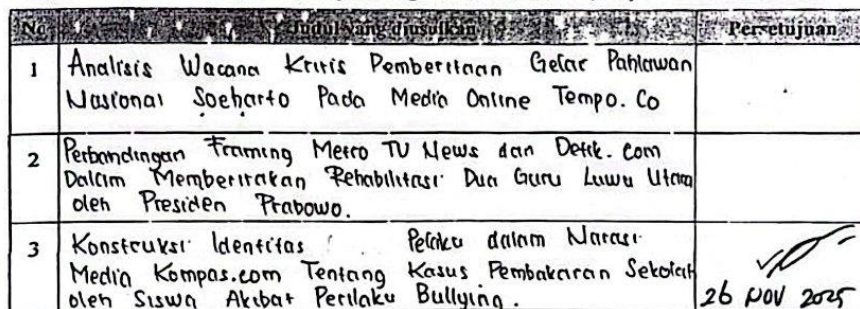 No Judul yang diusulkan Persetujuan
1 Analisis Wacana Kritis Pemberitaan Gelar Pahlawan
Nasional Soeharto Pada Media Online Tempo. Co
2 Perbandingan Framing Metro TV News dan Detik. Com
Dalam Memberitakan Rehabilitasi Dua Guru Luwu Utara
oleh Presiden Prabowo.
3 Konstruksi Identitas Pelaku dalam Narasi
Media Kompas.com Tentang Kasus Pembakaran Sekolah
oleh Siswa Akibat Perilaku Bullying. 26 NOV 2025